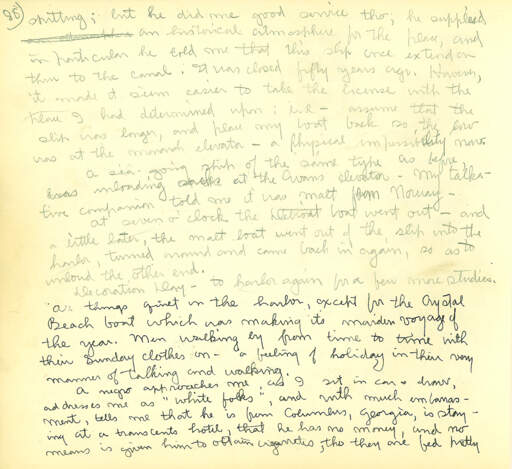 26) strutting; but he did me good service tho; he supplied
an historical atmosphere for the place, and
in particular he told me that this slip once extended
thru to the canal; it was closed fifty years ago. However,
it made it seem easier to take the license with the
place I had determined upon; i.e - assume that the
slip was longer, and place my boat back so, the bow
was at the monarch elevator - a physical impossibility now.
a sea-going ship of the same type as before,
was unloading sacks at the Evans elevator - My talka-
tive companion told me it was malt from Norway -
at seven o'clock the Detroit boat went out - and
a little later, the malt boat went out of the slip into the
harbor, turned around and came back in again, so as to
unload the other end.
Decoration Day - to harbor again for a few more studies.
things quiet in the harbor, except for the Crystal
Beach boat which was making its maiden voyage of
the year. Men walking by from time to time with
their Sunday clothes on - a feeling of holiday in their very
manner of talking and walking.
A negro approaches me as I sit in car & draw,
addresses me as "white folks", and with much embarass-
ment, tells me that he is from Columbus, Georgia, is stay-
ing at a transcents hotel, that he has no money, and no
means is given him to obtain cigarettes, tho they are fed pretty